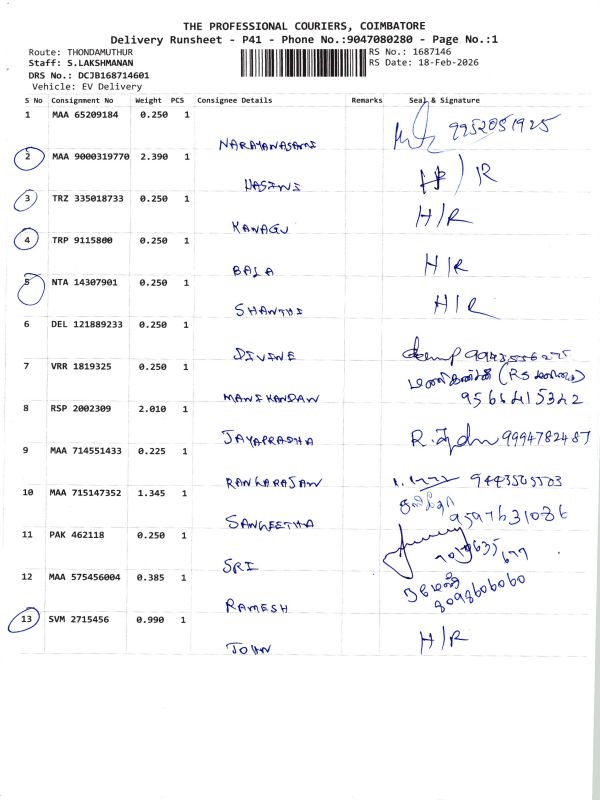 THE PROFESSIONAL COURIERS, COIMBATORE
Delivery Runsheet - P41 - Phone No.:9047080280 - Page No.:1
Route: THONDAMUTHUR
RS No.: 1687146
Staff: S.LAKSHMANAN
RS Date: 18-Feb-2026
DRS No.: DCJB168714601
Vehicle: EV Delivery
S No Consignment No Weight PCS Consignee Details Remarks Seal & Signature
1 MAA 65209184 0.250 1
NARAYANASAMI 9952051925
2 MAA 9000319770 2.390 1
HASINI H/R
3 TRZ 335018733 0.250 1
KANAGU H/R
4 TRP 9115800 0.250 1
BALA H/R
5 NTA 14307901 0.250 1
SHANTHI H/R
6 DEL 121889233 0.250 1
DIVINE
7 VRR 1819325 0.250 1
MANIKANDAN 9566415342
8 RSP 2002309 2.010 1
JAYAPRADHA 9994782487
9 MAA 714551433 0.225 1
RANGARAJAN 9443565503
10 MAA 715147352 1.345 1
SANGEETHA 9597631086
11 PAK 462118 0.250 1
SRI
12 MAA 575456004 0.385 1
RAMESH 8098606060
13 SVM 2715456 0.990 1
JOHN H/R